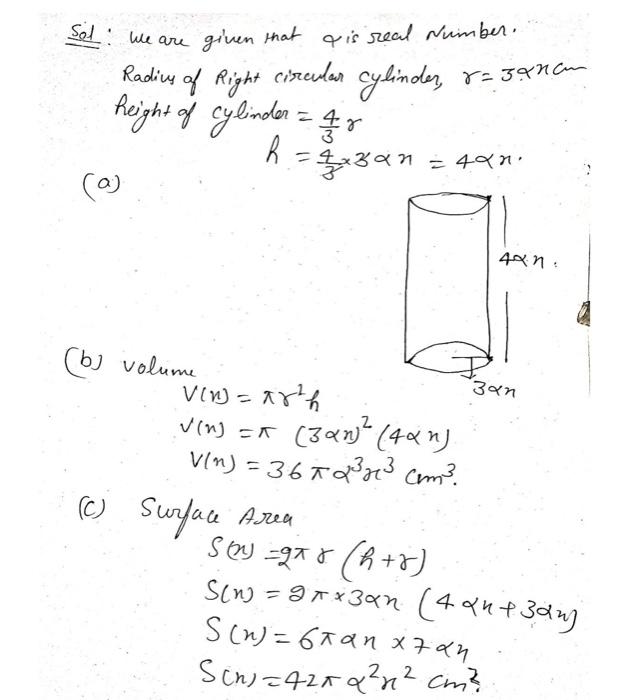 Sol: We are given that α is real Number.
Radius of Right circular cylinder, r = 3αx cm
height of cylinder = 4/3 r
h = 4/3 × 3αx = 4αx.
(a)
4αx.
3αx
(b) volume
V(x) = πr²h
V(x) = π (3αx)² (4αx)
V(x) = 36πα³x³ cm³.
(c) Surface Area
S(x) = 2πr (h+r)
S(x) = 2π×3αx (4αx+3αx)
S(x) = 6παx × 7αx
S(x) = 42πα²x² cm².